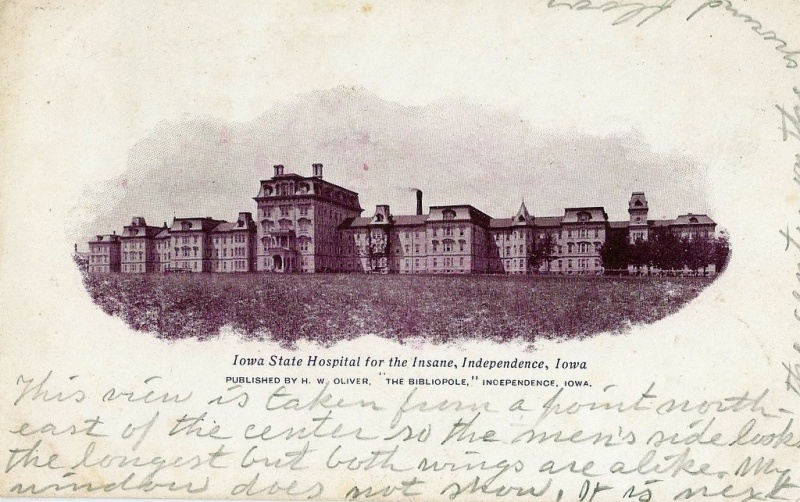 Iowa State Hospital for the Insane, Independence, Iowa
PUBLISHED BY H. W. OLIVER, "THE BIBLIOPOLE," INDEPENDENCE, IOWA.
This view is taken from a point north-
east of the center so the men's side looks
the longest but both wings are alike. My
window does not show, It is next
the cent on the